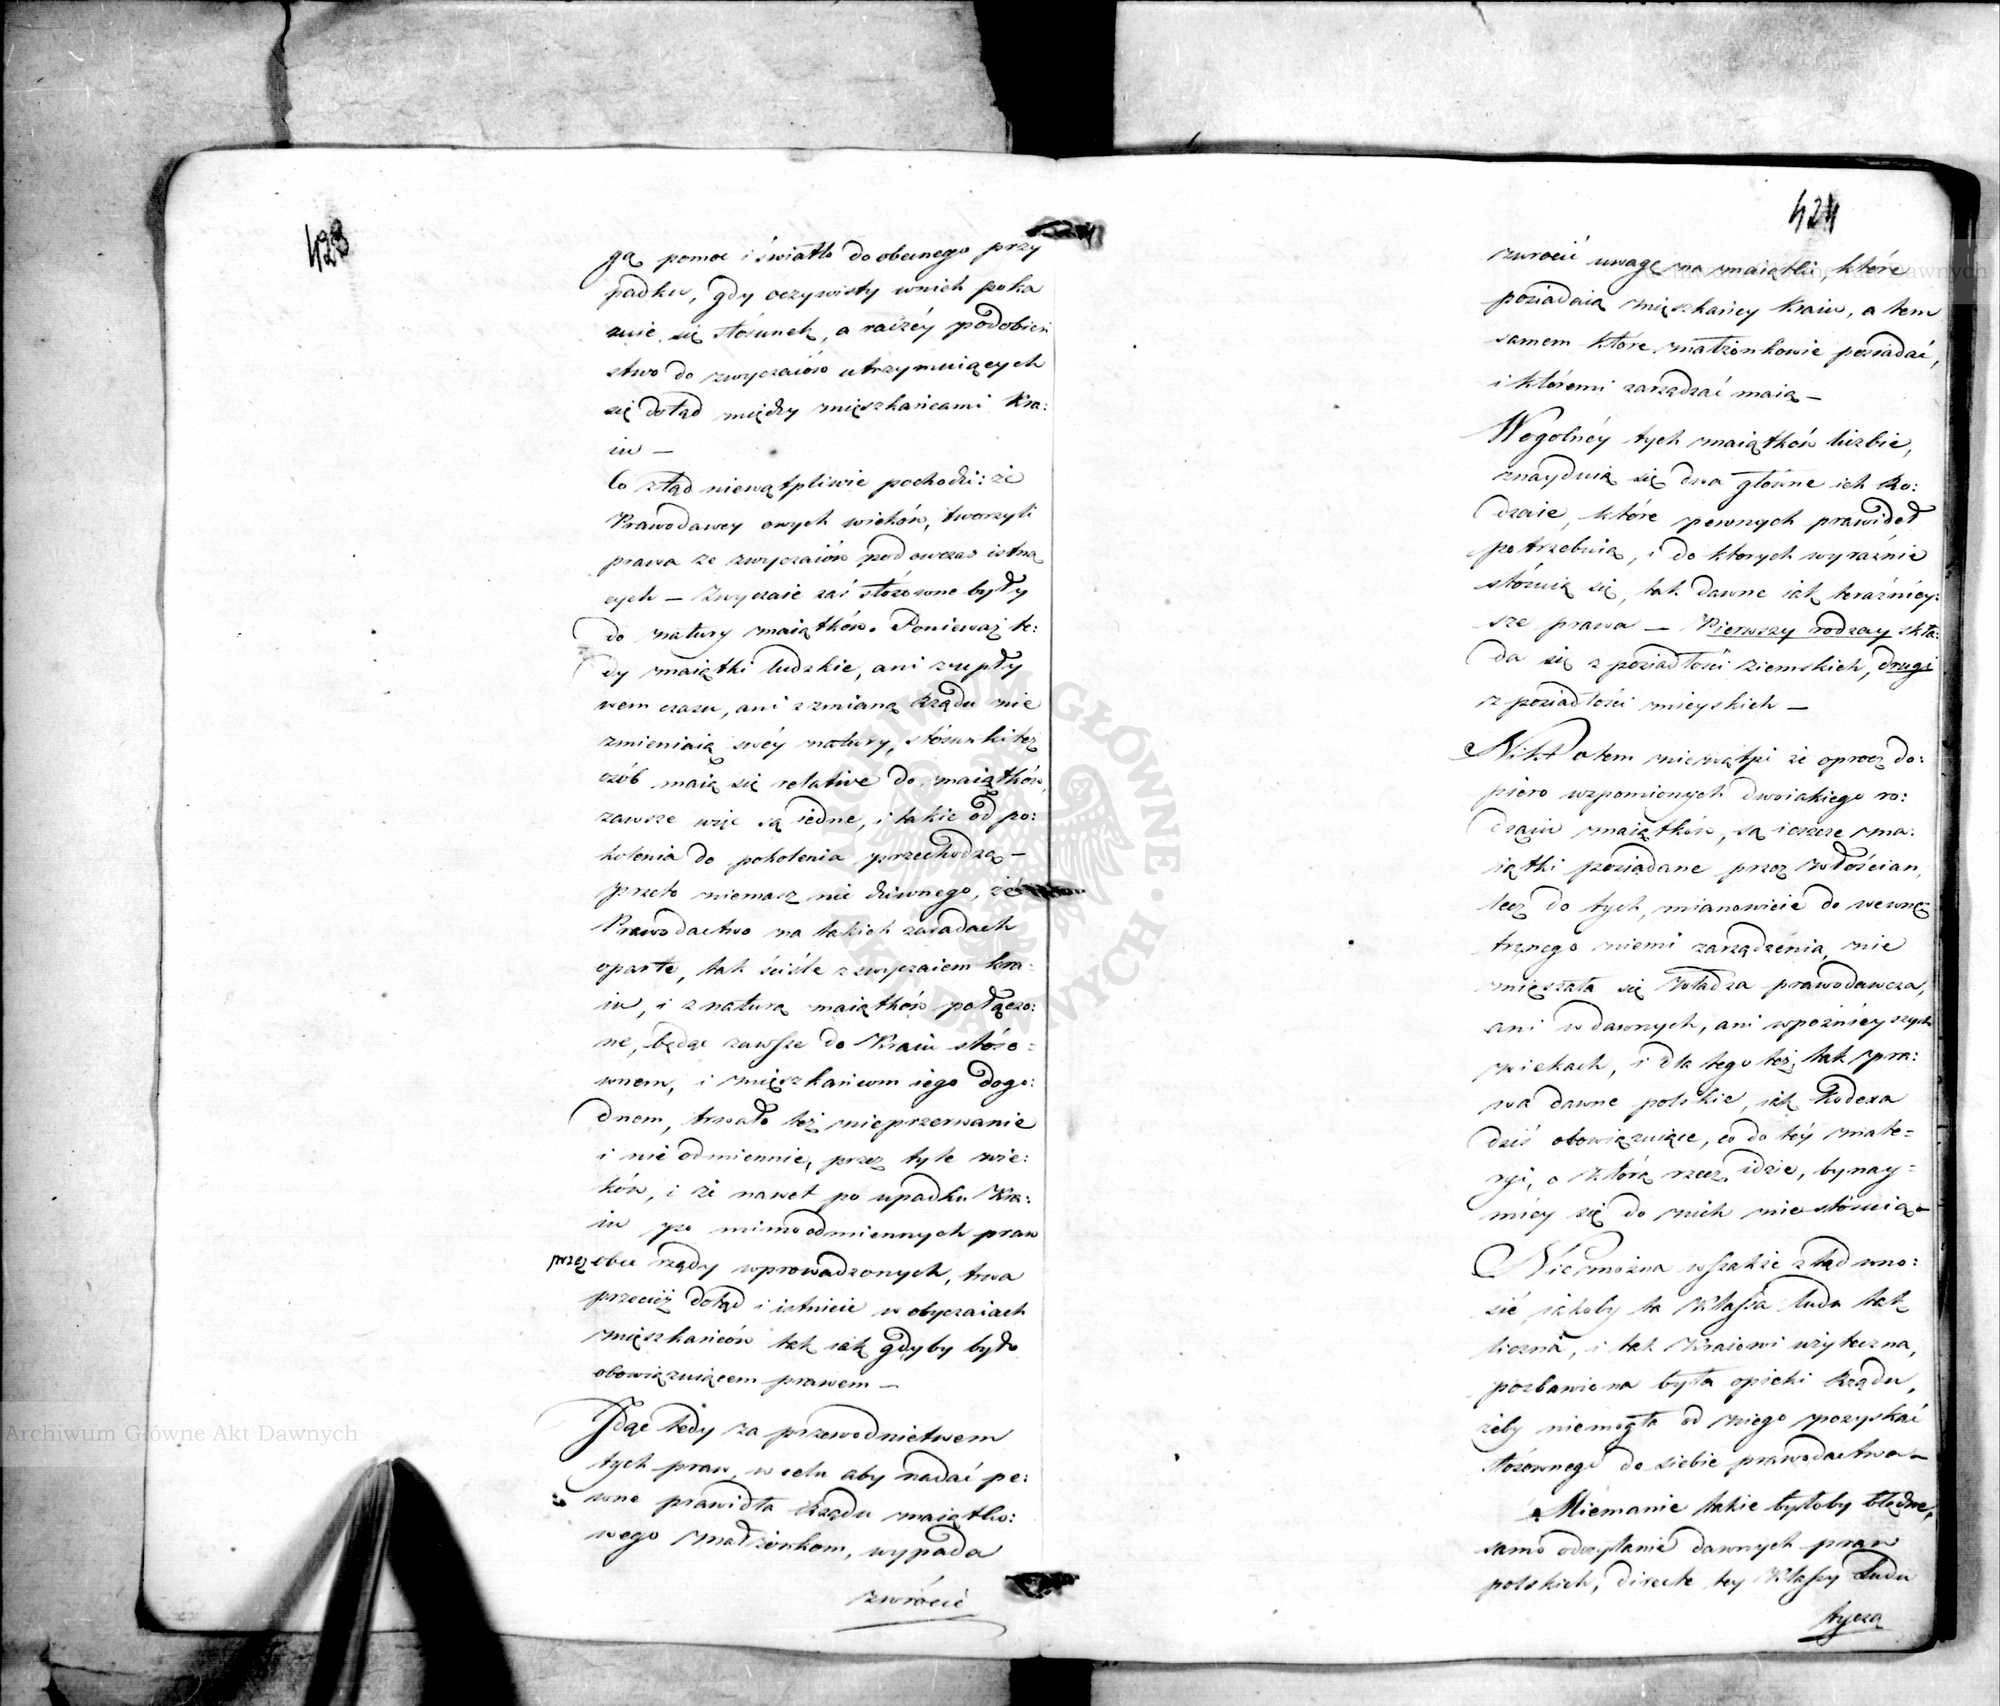 423
gą pomoc i światło do obecnego przy
padku, gdy oczywisty wnich poka
zuie się stósunek, a raczéy podobień
stwo do zwyczaiów utrzymuiących
się dotąd między mięszkańcami Kra:
iu —
Co ztąd niewątpliwie pochodzi: że
Prawodawcy owych wieków, tworzyli
prawa ze zwyczaiów podowczas istną
cych — Zwyczaie zaś stósowne były
do natury maiątków. Ponieważ te:
dy maiątki ludzkie, ani z upły
wem czasu, ani z zmianą Rządu nie
zmieniaią swéy natury, stósunki też
osób maią się relative do maiątków,
zawsze więc są iedne, i takie od po:
kolenia do pokolenia przechodzą —
przeto niemasz nic dziwnego, że
Prawodactwo na takich zasadach
oparte, tak ściśle z zwyczaiem kra:
iu, i z naturą maiątków połączo:
ne, będąc zawsze do Kraiu stóso=
wnem, i mięszkańcom iego dogo:
dnem, trwało też nieprzerwanie
i nie odmiennie, przez tyle wie:
ków, i że nawet po upadku Kra:
iu po mimo odmiennych praw
przez obce rządy wprowadzonych, trwa
przecież dotąd i istnieie w obyczaiach
mięszkańców tak iak gdyby było
obowiązuiącem prawem —
Idąc tedy za przewodnictwem
tych praw, w celu aby nadać pe:
wne prawidła Rządu maiątko:
wego małżonkom, wypada
zwrócić
424
zwrócić uwagę na maiątki, które
posiadaią mięszkańcy Kraiu, a tem
samem które małżonkowie posiadać,
i któremi zarządzać maią —
Wogólnéy tych maiątków liczbie,
znayduią się dwa główne ich Ro:
dzaie, które pewnych prawideł
potrzebuią, i do ktorych wyraźnie
stósuią się, tak dawne iak teraźniéy:
sze prawa — Pierwszy rodzay skła:
da się z posiadłości ziemskich, drugi
z posiadłości mieyskich —
Nikt otem niewątpi że oprócz do:
piero wzpomionych dwoiakiego ro:
dzaiu maiątków, są ieszcze ma:
iątki posiadane przez Włościan,
lecz do tych, mianowicie do wewnę=
trznego niemi zarządzenia, nie
mięszała się Władza prawodawcza,
ani w dawnych, ani wpoźniéyszych
wiekach, i dla tego też, tak pra:
wa dawne polskie, iak Kodexa
dziś obowiązuiące, co do téy mate=
ryi, o którą rzecz idzie, bynay=
mniéy się do nich nie stósuią —
Nie można wszakże ztąd wno:
sić, iakoby ta Klassa ludu tak
liczna, i tak Kraiowi użyteczna,
pozbawiona była opieki Rządu,
żeby niemogła od niego pozyskać
stósownego do siebie prawodactwa —
Mniemanie takie byłoby błędne,
samo odczytanie dawnych praw
polskich, directe tey Klassy Ludu
tycza